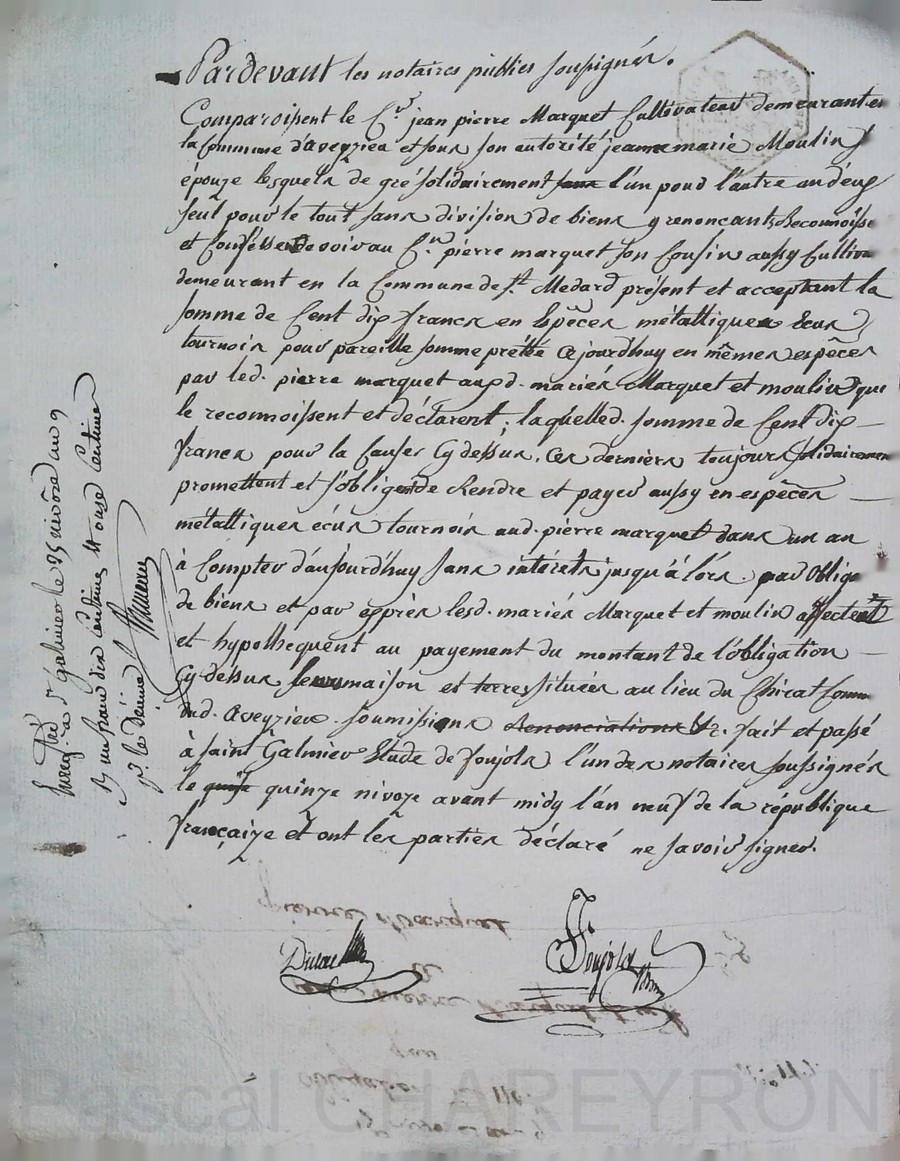 Pardevant les notaires publics soussignés.
Comparoissent le C.en jean pierre Marquet Cultivateur demeurant en
la Commune d'aveyzieu et sous son autorité jeanne marie Moulin s
épouze lesquels de gré solidairement l'un pour l'autre un d'eux
seul pour le tout sans division de biens y renonçants Reconnoisse
et Confesse devoir au C.en pierre marquet son Cousin aussy Cultiva
demeurant en la Commune de S.t Medard présent et acceptant la
somme de Cent dix francs en Espèces métalliques Ecus
tournois pour pareille somme prêtée ajourdhuy en mêmes espèces
par led. pierre marquet auxd. mariés Marquet et moulin qui
le reconnoissent et déclarent ; laquelled. somme de Cent dix
francs pour la Causes Cy dessus. Ces derniers toujours solidairemen
promettent et s'obligent de Rendre et payer aussy en espèces
métalliques écus tournois aud. pierre marquet dans un an
à Compter d'aujourd'huy sans intérêts jusqu'à lors. par Oblige
de biens et par exprès lesd. mariés Marquet et moulin affectent
et hypothequent au payement du montant de l'obligation
Cy dessus leurs maison et terres situées au lieu du Chirat Comm
ud. Aveyzieu. soumissions Renonciations &c. fait et passé
à saint Galmier Etude de Foujols l'un des notaires soussignés
le quinze nivoze avant midy l'an neuf de la république
françaize et ont les parties déclaré ne savoir signer.
Foujols
Enreg.tré à S.t galmier le 25 nivôse an 9
R un franc dix centimes et onze centimes
p.r le dixième
pierre Marquet
Pascal CHAREYRON